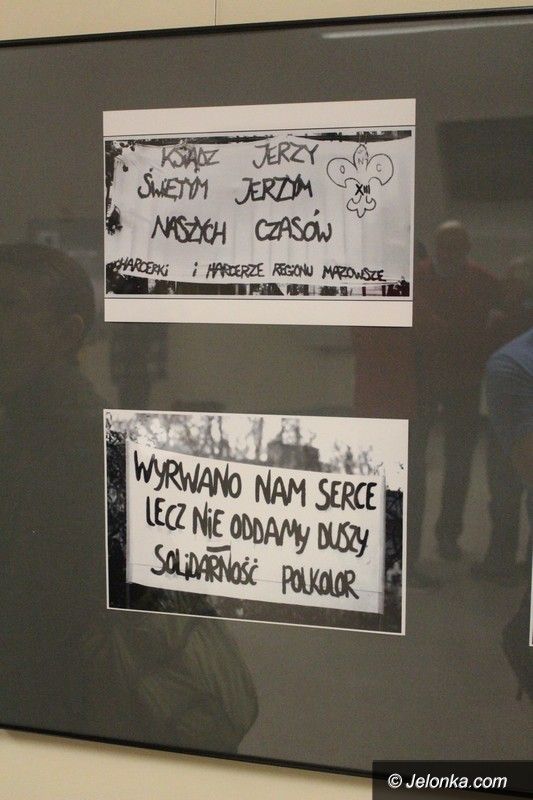 KSIĄDZ JERZY
ŚWIĘTYM JERZYM
NASZYCH CZASÓW
HARCERKI i HARCERZE REGIONU MAZOWSZE
O N C
XIII
WYRWANO NAM SERCE
LECZ NIE ODDAMY DUSZY
SOLIDARNOŚĆ POLKOLOR
© Jelonka.com